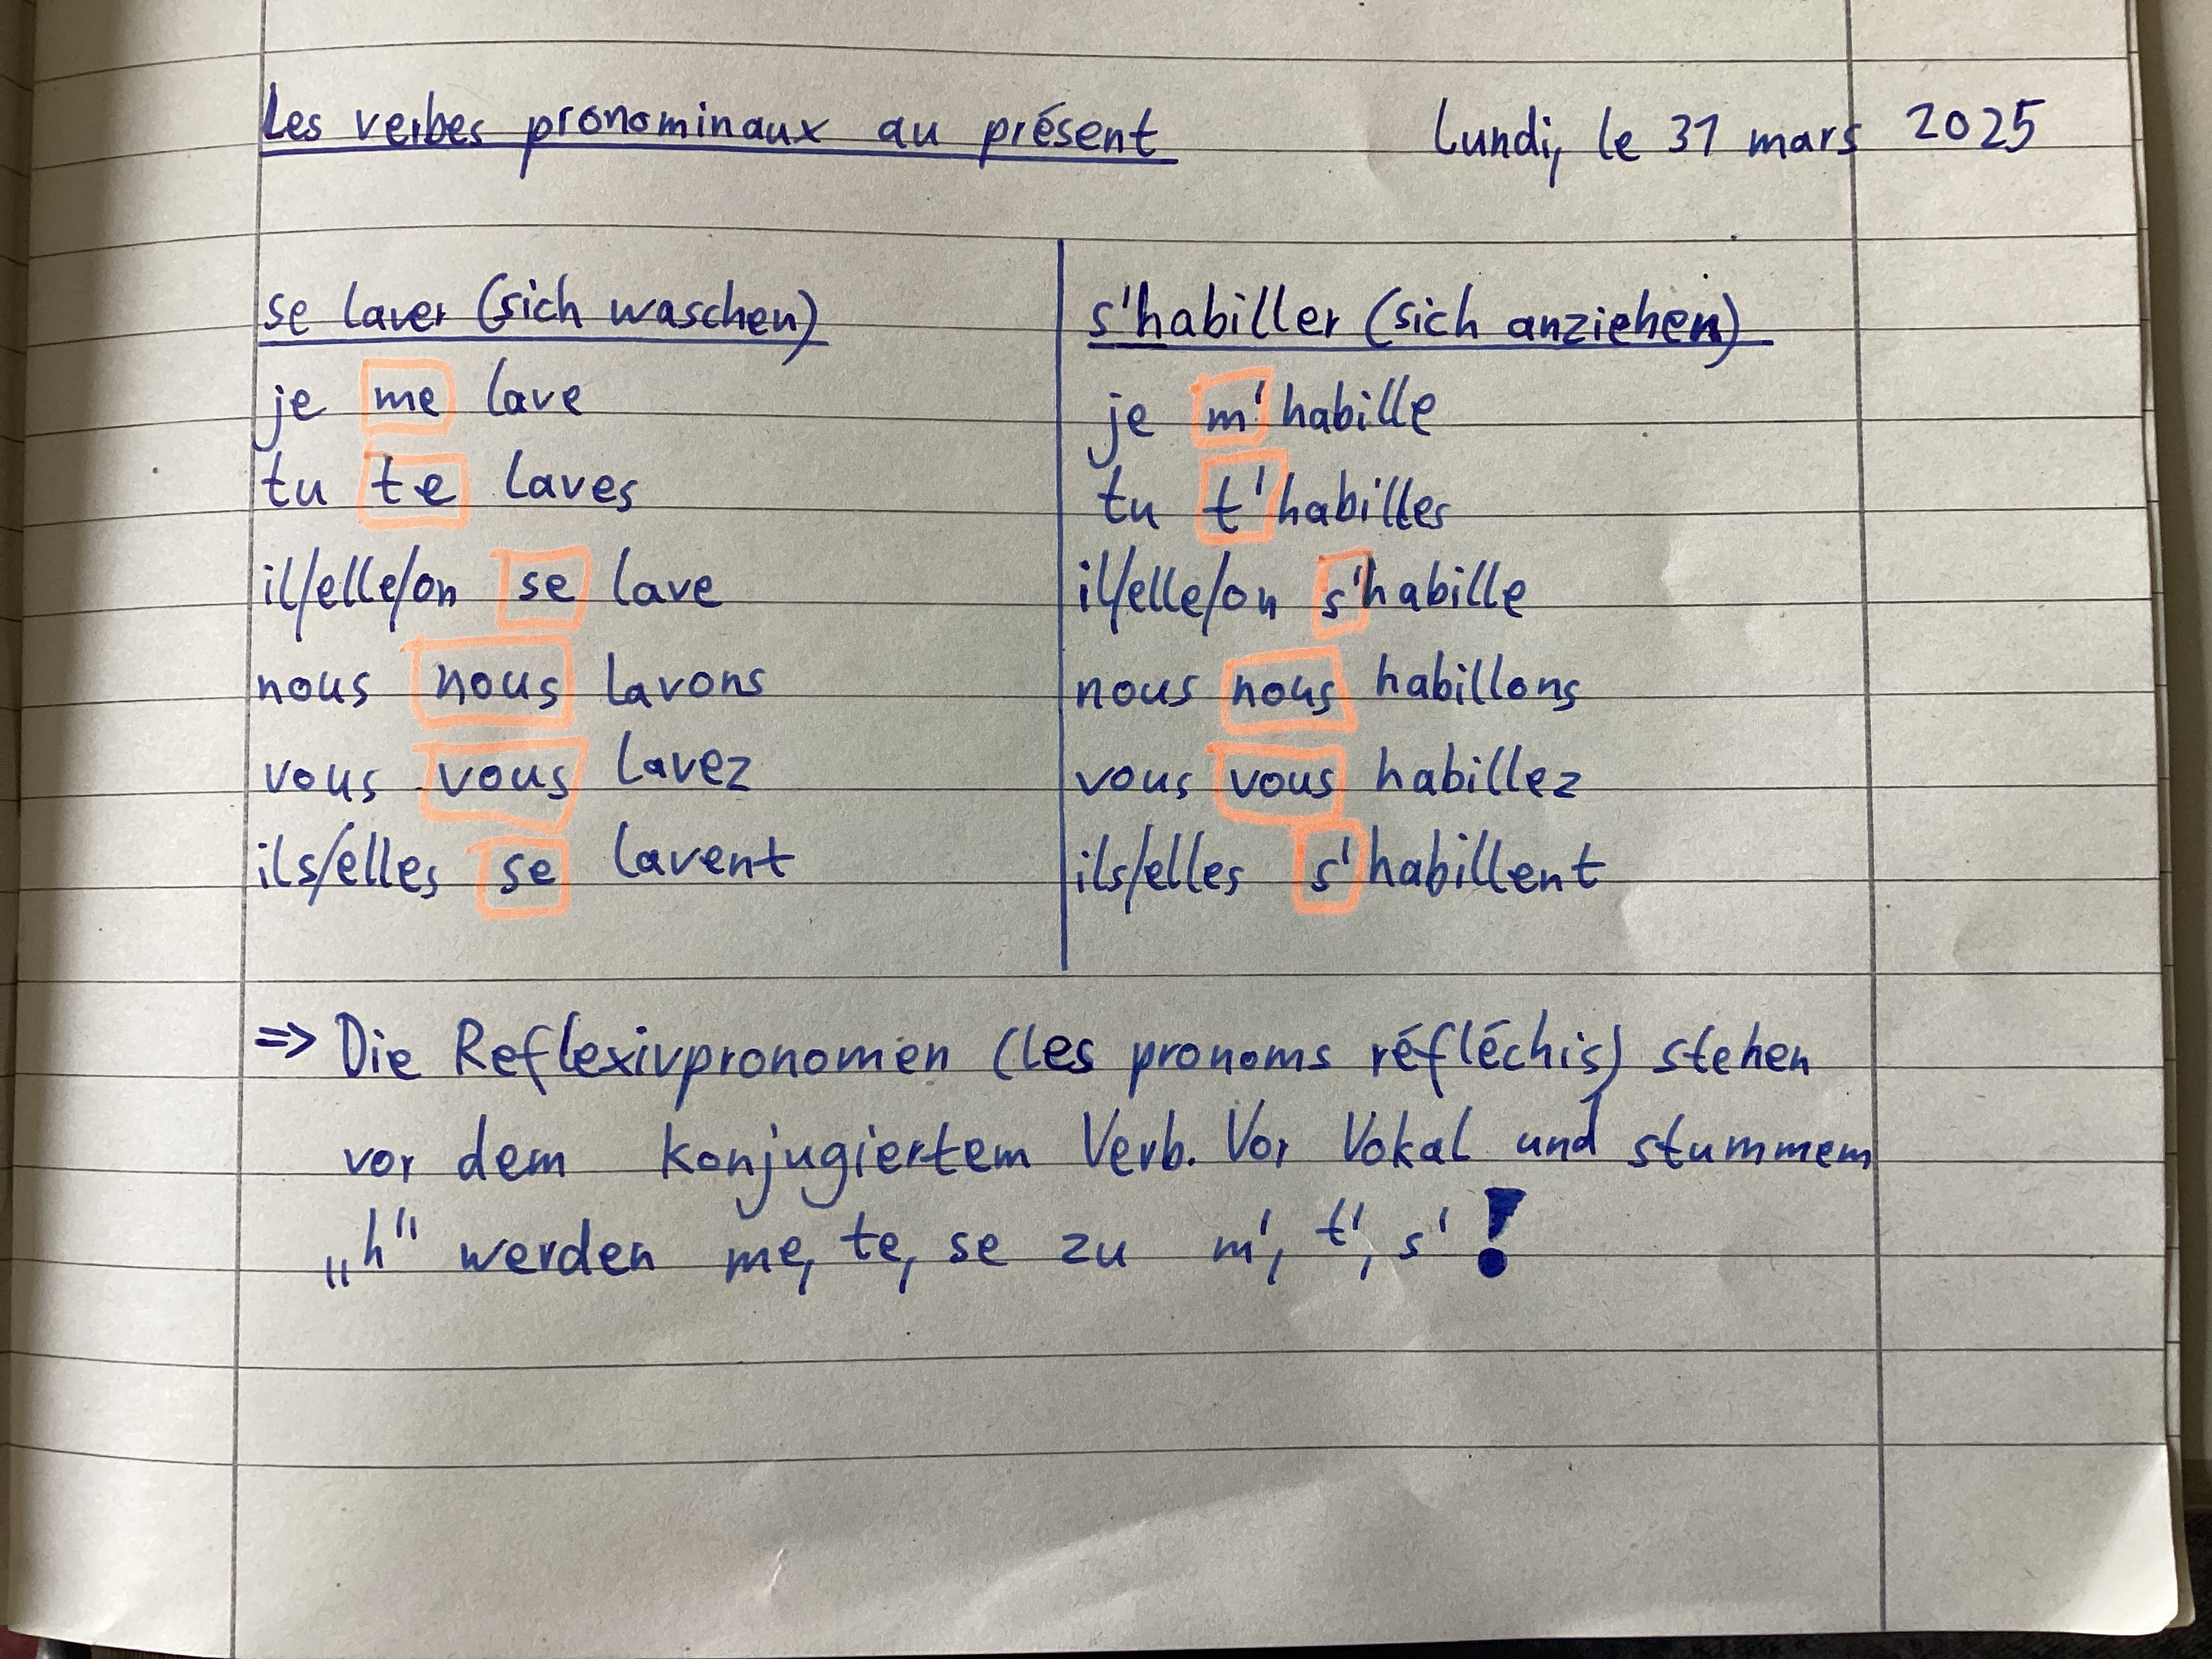 Les verbes pronominaux au présent Lundi, le 31 mars 2025
se laver (sich waschen)
je me lave
tu te laves
il/elle/on se lave
nous nous lavons
vous vous lavez
ils/elles se lavent
s'habiller (sich anziehen)
je m'habille
tu t'habilles
il/elle/on s'habille
nous nous habillons
vous vous habillez
ils/elles s'habillent
=> Die Reflexivpronomen (les pronoms réfléchis) stehen
vor dem konjugiertem Verb. Vor Vokal und stummem
„h" werden me, te, se zu m', t', s' !